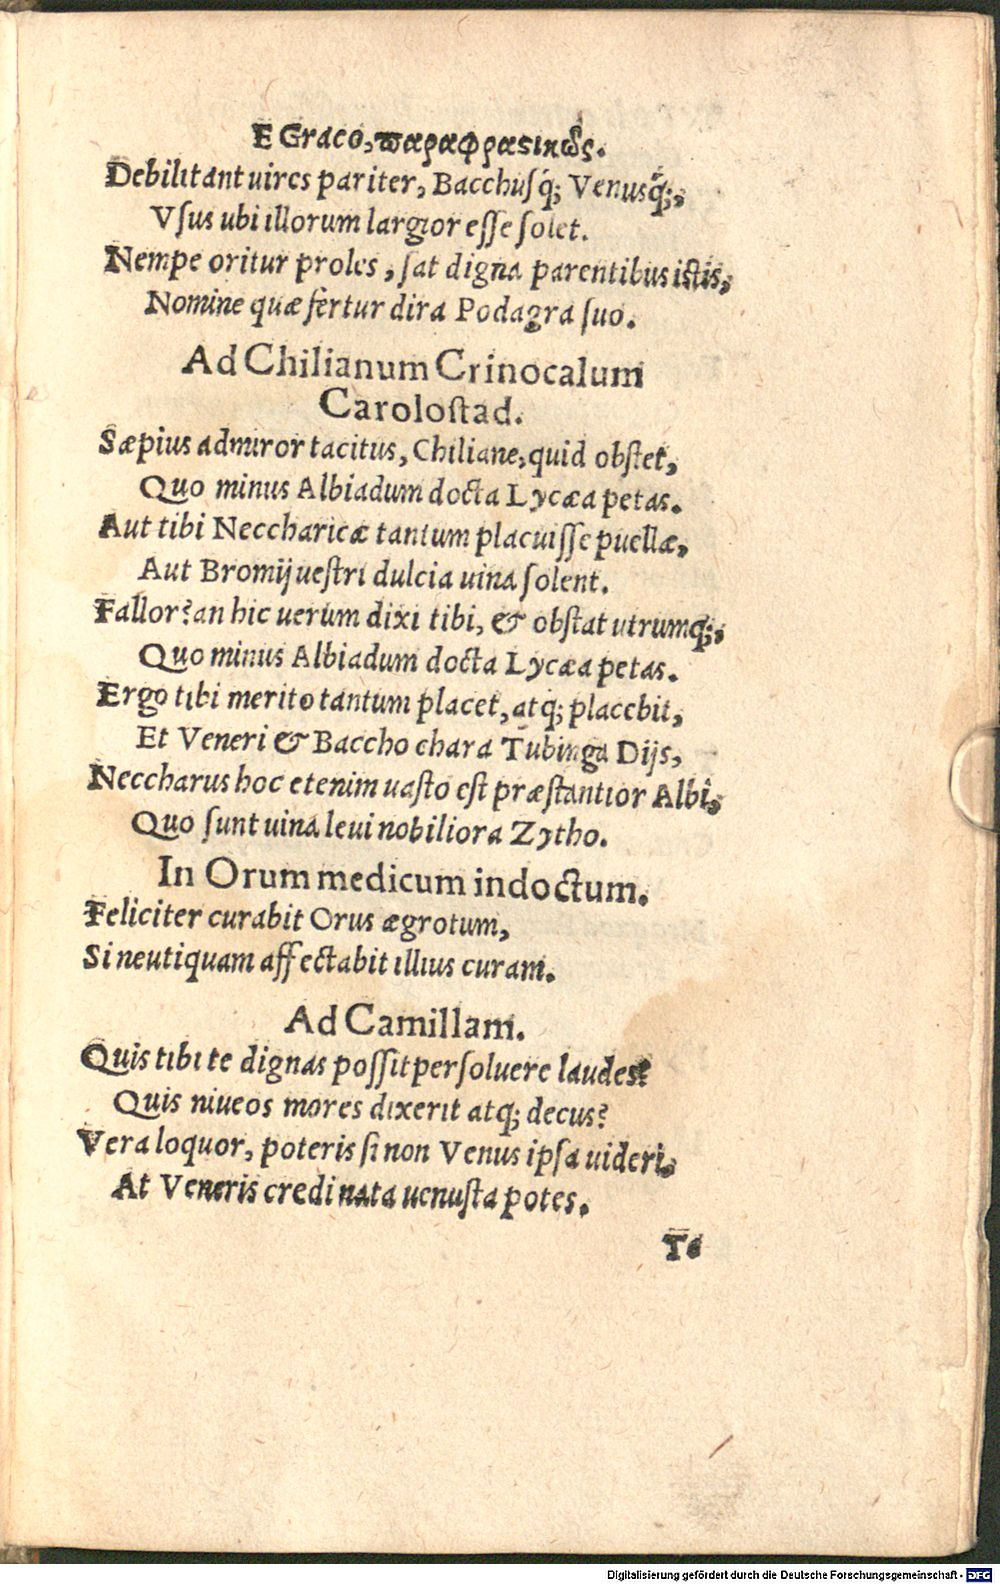 E Græco, παραφραστικῶς.
Debilitant uires pariter, Bacchusq́;, Venusq́;,
Vſus ubi illorum largior eſſe ſolet.
Nempe oritur proles, ſat digna parentibus iſtis,
Nomine quæ fertur dira Podagra ſuo.
Ad Chilianum Crinocalum
Caroloſtad.
Sæpius admiror tacitus, Chiliane, quid obſtet,
Quo minus Albiadum docta Lycæa petas.
Aut tibi Neccharicæ tantum placuiſſe puellæ,
Aut Bromij ueſtri dulcia uina ſolent.
Fallor? an hic uerum dixi tibi, & obſtat utrumq;,
Quo minus Albiadum docta Lycæa petas.
Ergo tibi merito tantum placet, atq; placebit,
Et Veneri & Baccho chara Tubinga Dijs,
Neccharus hoc etenim uaſto eſt præſtantior Albi,
Quo ſunt uina leui nobiliora Zytho.
In Orum medicum indoctum.
Feliciter curabit Orus ægrotum,
Si neutiquam affectabit illius curam.
Ad Camillam.
Quis tibi te dignas poſſit perſoluere laudes?
Quis niueos mores dixerit atq; decus?
Vera loquor, poteris ſi non Venus ipſa uideri,
At Veneris credi nata uenuſta potes.
Te
Digitalisierung gefördert durch die Deutsche Forschungsgemeinschaft - DFG